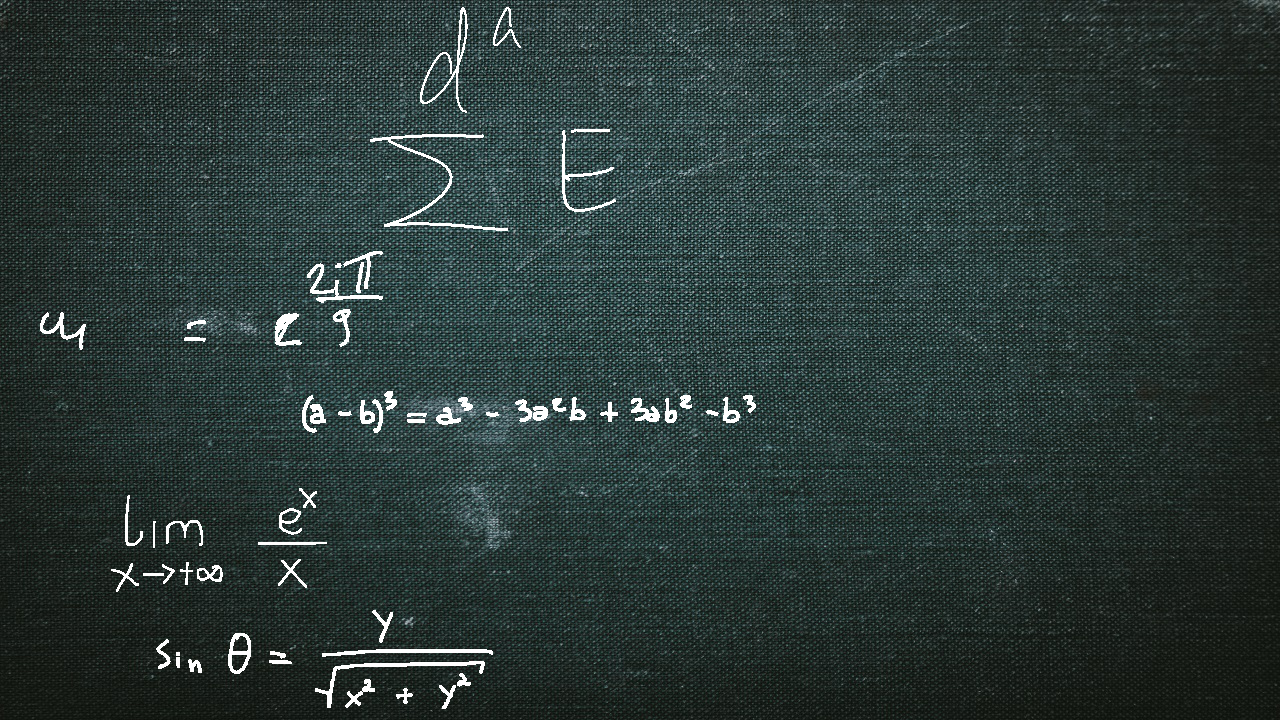 \sum^{d^a} E
u_1 = e^{\frac{2i\pi}{9}}
(a - b)^3 = a^3 - 3a^2b + 3ab^2 - b^3
\lim_{x \to +\infty} \frac{e^x}{x}
\sin \theta = \frac{y}{\sqrt{x^2 + y^2}}